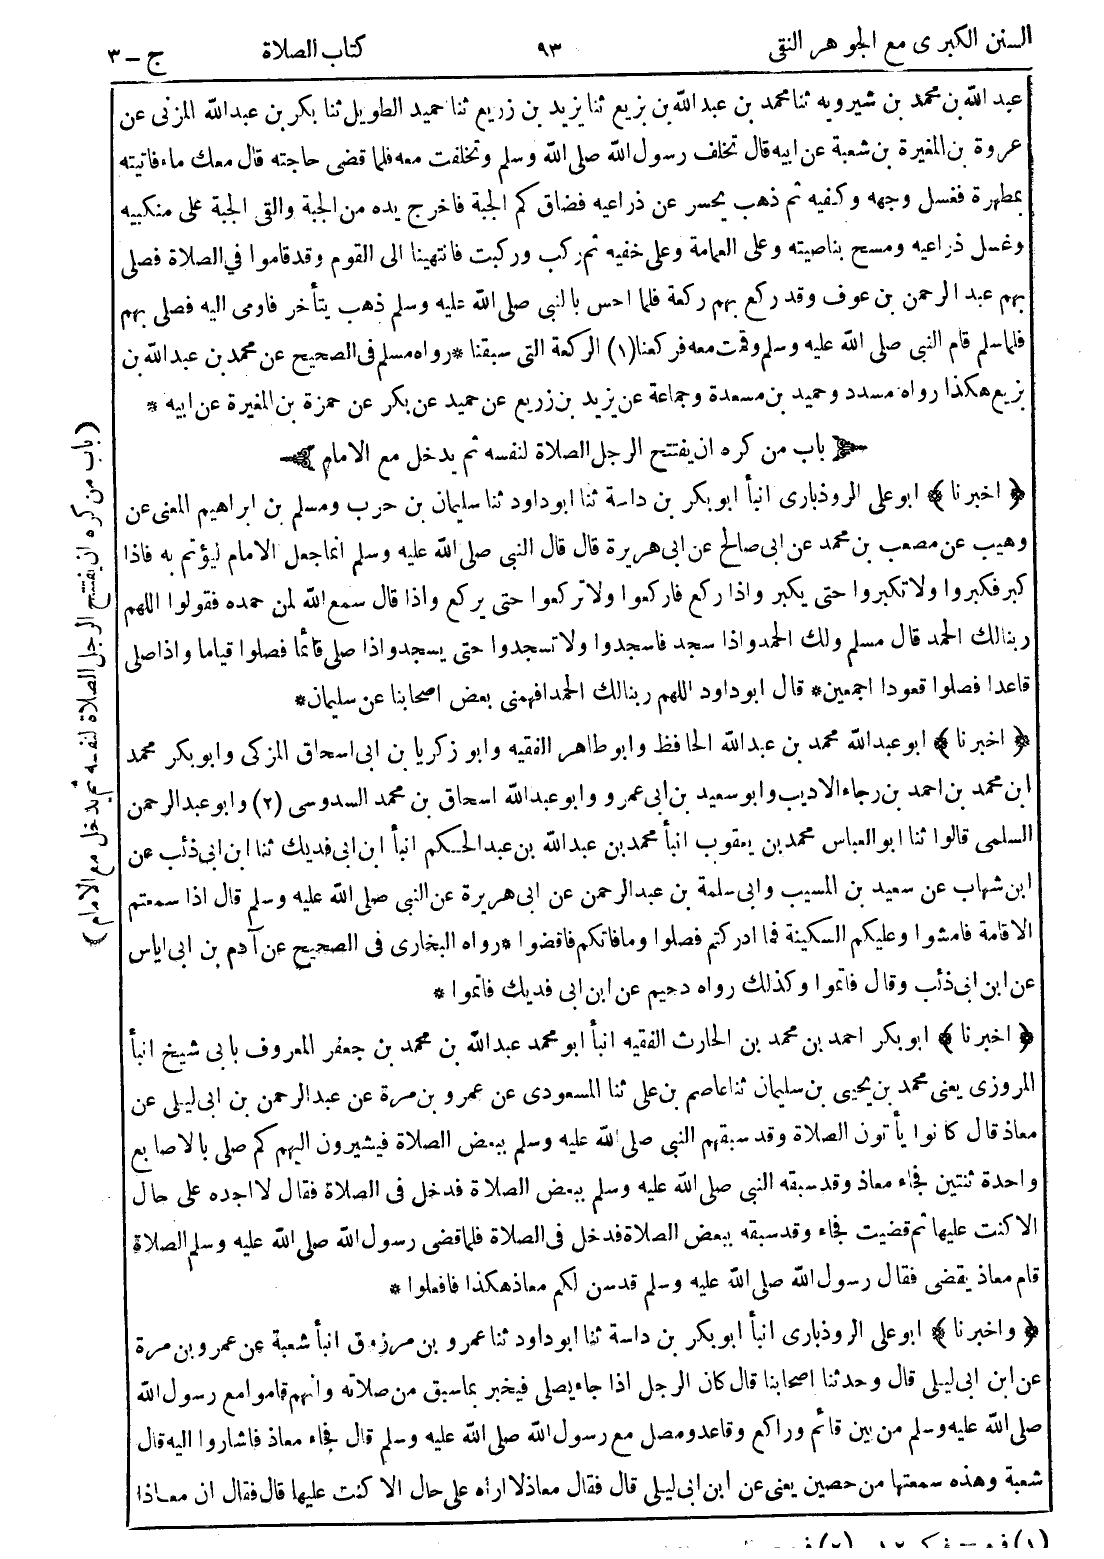 السنن الكبرى مع الجوهر النقى ٩٣ كتاب الصلاة ج - ٣
عبد الله بن محمد بن شيرويه ثنا محمد بن عبد الله بن بزيع ثنا يزيد بن زريع ثنا حميد الطويل ثنا بكر بن عبد الله المزنى عن
عروة بن المغيرة بن شعبة عن ابيه قال تخلف رسول الله صلى الله وسلم وتخلفت معه فلما قضى حاجته قال معك ماء فاتيته
بمطهرة فغسل وجهه وكفيه ثم ذهب يحسر عن ذراعيه فضاق كم الجبة فاخرج يده من الجبة والقى الجبة على منكبيه
وغسل ذراعيه ومسح بناصيته وعلى العمامة وعلى خفيه ثم ركب وركبت فانتهينا الى القوم وقد قاموا في الصلاة فصلى
بهم عبد الرحمن بن عوف وقد ركع بهم ركعة فلما احس بالنبى صلى الله عليه وسلم ذهب يتأخر فاومى اليه فصلى بهم
فلما سلم قام النبى صلى الله عليه وسلم وقمت معه فركعنا (١) الركعة التى سبقنا * رواه مسلم فى الصحيح عن محمد بن عبد الله بن
بزيع هكذا رواه مسدد وحميد بن مسعدة وجماعة عن يزيد بن زريع عن حميد عن بكر عن حمزة بن المغيرة عن ابيه *
باب من كره ان يفتتح الرجل الصلاة لنفسه ثم يدخل مع الامام
﴿ اخبرنا ﴾ ابو على الروذبارى انبأ ابو بكر بن داسة ثنا ابو داود ثنا سليمان بن حرب ومسلم بن ابراهيم المعنى عن
وهيب عن مصعب بن محمد عن ابى صالح عن ابى هريرة قال قال النبى صلى الله عليه وسلم انما جعل الامام ليؤتم به فاذا
كبر فكبروا ولا تكبروا حتى يكبر واذا ركع فاركعوا ولا تركعوا حتى يركع واذا قال سمع الله لمن حمده فقولوا اللهم
ربنا لك الحمد قال مسلم ولك الحمد واذا سجد فاسجدوا ولا تسجدوا حتى يسجد واذا صلى قائما فصلوا قياما واذا صلى
قاعدا فصلوا قعودا اجمعين * قال ابو داود اللهم ربنا لك الحمد افهمنى بعض اصحابنا عن سليمان *
﴿ اخبرنا ﴾ ابو عبد الله محمد بن عبد الله الحافظ وابو طاهر الفقيه وابو زكريا بن ابى اسحاق المزكى وابو بكر محمد
ابن محمد بن احمد بن رجاء الاديب وابو سعيد بن ابى عمرو وابو عبد الله اسحاق بن محمد السدوسى (٢) وابو عبد الرحمن
السلمى قالوا ثنا ابو العباس محمد بن يعقوب انبأ محمد بن عبد الله بن عبد الحكم انبأ ابن ابى فديك ثنا ابن ابى ذئب عن
ابن شهاب عن سعيد بن المسيب وابى سلمة بن عبد الرحمن عن ابى هريرة عن النبى صلى الله عليه وسلم قال اذا سمعتم
الاقامة فامشوا وعليكم السكينة فما ادركتم فصلوا وما فاتكم فاقضوا * رواه البخارى فى الصحيح عن آدم بن ابى اياس
عن ابن ابى ذئب وقال فاتموا وكذلك رواه دحيم عن ابن ابى فديك فاتموا *
﴿ اخبرنا ﴾ ابو بكر احمد بن محمد بن الحارث الفقيه انبأ ابو محمد عبد الله بن محمد بن جعفر المعروف بابى شيخ انبأ
المروزى يعنى محمد بن يحيى بن سليمان ثنا عاصم بن على ثنا المسعودى عن عمرو بن مرة عن عبد الرحمن بن ابى ليلى عن
معاذ قال كانوا يأتون الصلاة وقد سبقهم النبى صلى الله عليه وسلم ببعض الصلاة فيشيرون اليهم كم صلى بالاصابع
واحدة ثنتين فجاء معاذ وقد سبقه النبى صلى الله عليه وسلم ببعض الصلاة فدخل فى الصلاة فقال لا اجده على حال
الا كنت عليها ثم قضيت فجاء وقد سبقه ببعض الصلاة فدخل فى الصلاة فلما قضى رسول الله صلى الله عليه وسلم الصلاة
قام معاذ يقضى فقال رسول الله صلى الله عليه وسلم قد سن لكم معاذ هكذا فافعلوا *
﴿ واخبرنا ﴾ ابو على الروذبارى انبأ ابو بكر بن داسة ثنا ابو داود ثنا عمرو بن مرزوق انبأ شعبة عن عمرو بن مرة
عن ابن ابى ليلى قال وحدثنا اصحابنا قال كان الرجل اذا جاء يصلى فيخبر بما سبق من صلاته وانهم قاموا مع رسول الله
صلى الله عليه وسلم من بين قائم وراكع وقاعد ومصل مع رسول الله صلى الله عليه وسلم قال فجاء معاذ فاشاروا اليه قال
شعبة وهذه سمعتها من حصين يعنى عن ابن ابى ليلى قال فقال معاذ لا اراه على حال الا كنت عليها قال فقال ان معاذا
(باب من كره ان يفتتح الرجل الصلاة لنفسه ثم يدخل مع الامام)